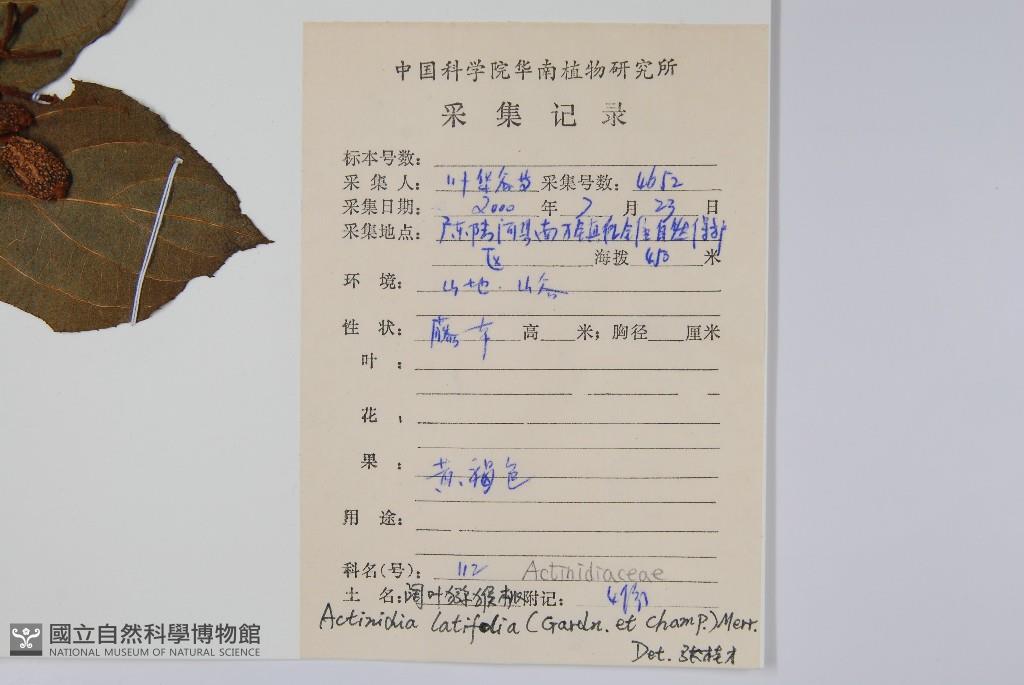 中国科学院华南植物研究所
采集记录
标本号数：
采集人：叶华谷 采集号数：4652
采集日期：2000年7月23日
采集地点：广东陆河县南万镇 自然保护
区 海拨 450 米
环境：山地．山谷
性状：藤本 高 米；胸径 厘米
叶：
花：
果：黄褐色
用途：
科名(号)：112 Actinidiaceae
土名：阔叶猕猴桃 附记：
Actinidia latifolia (Gardn. et Champ.) Merr.
Det. 张桂才
國立自然科學博物館
NATIONAL MUSEUM OF NATURAL SCIENCE